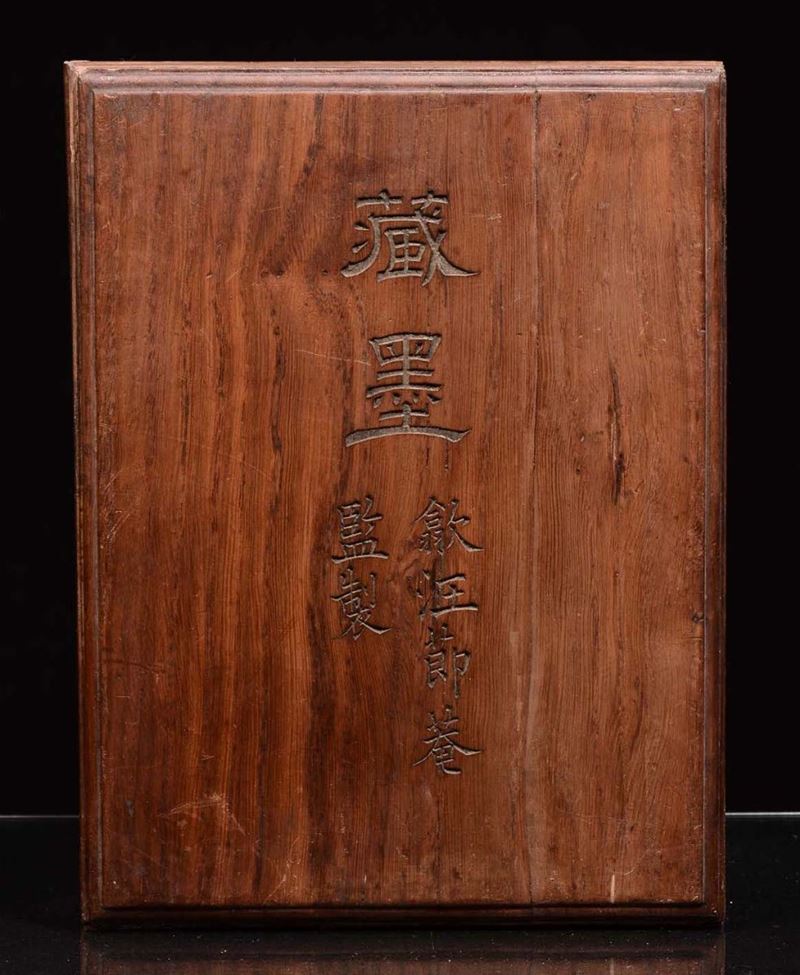 藏墨
歙汪節菴
監製